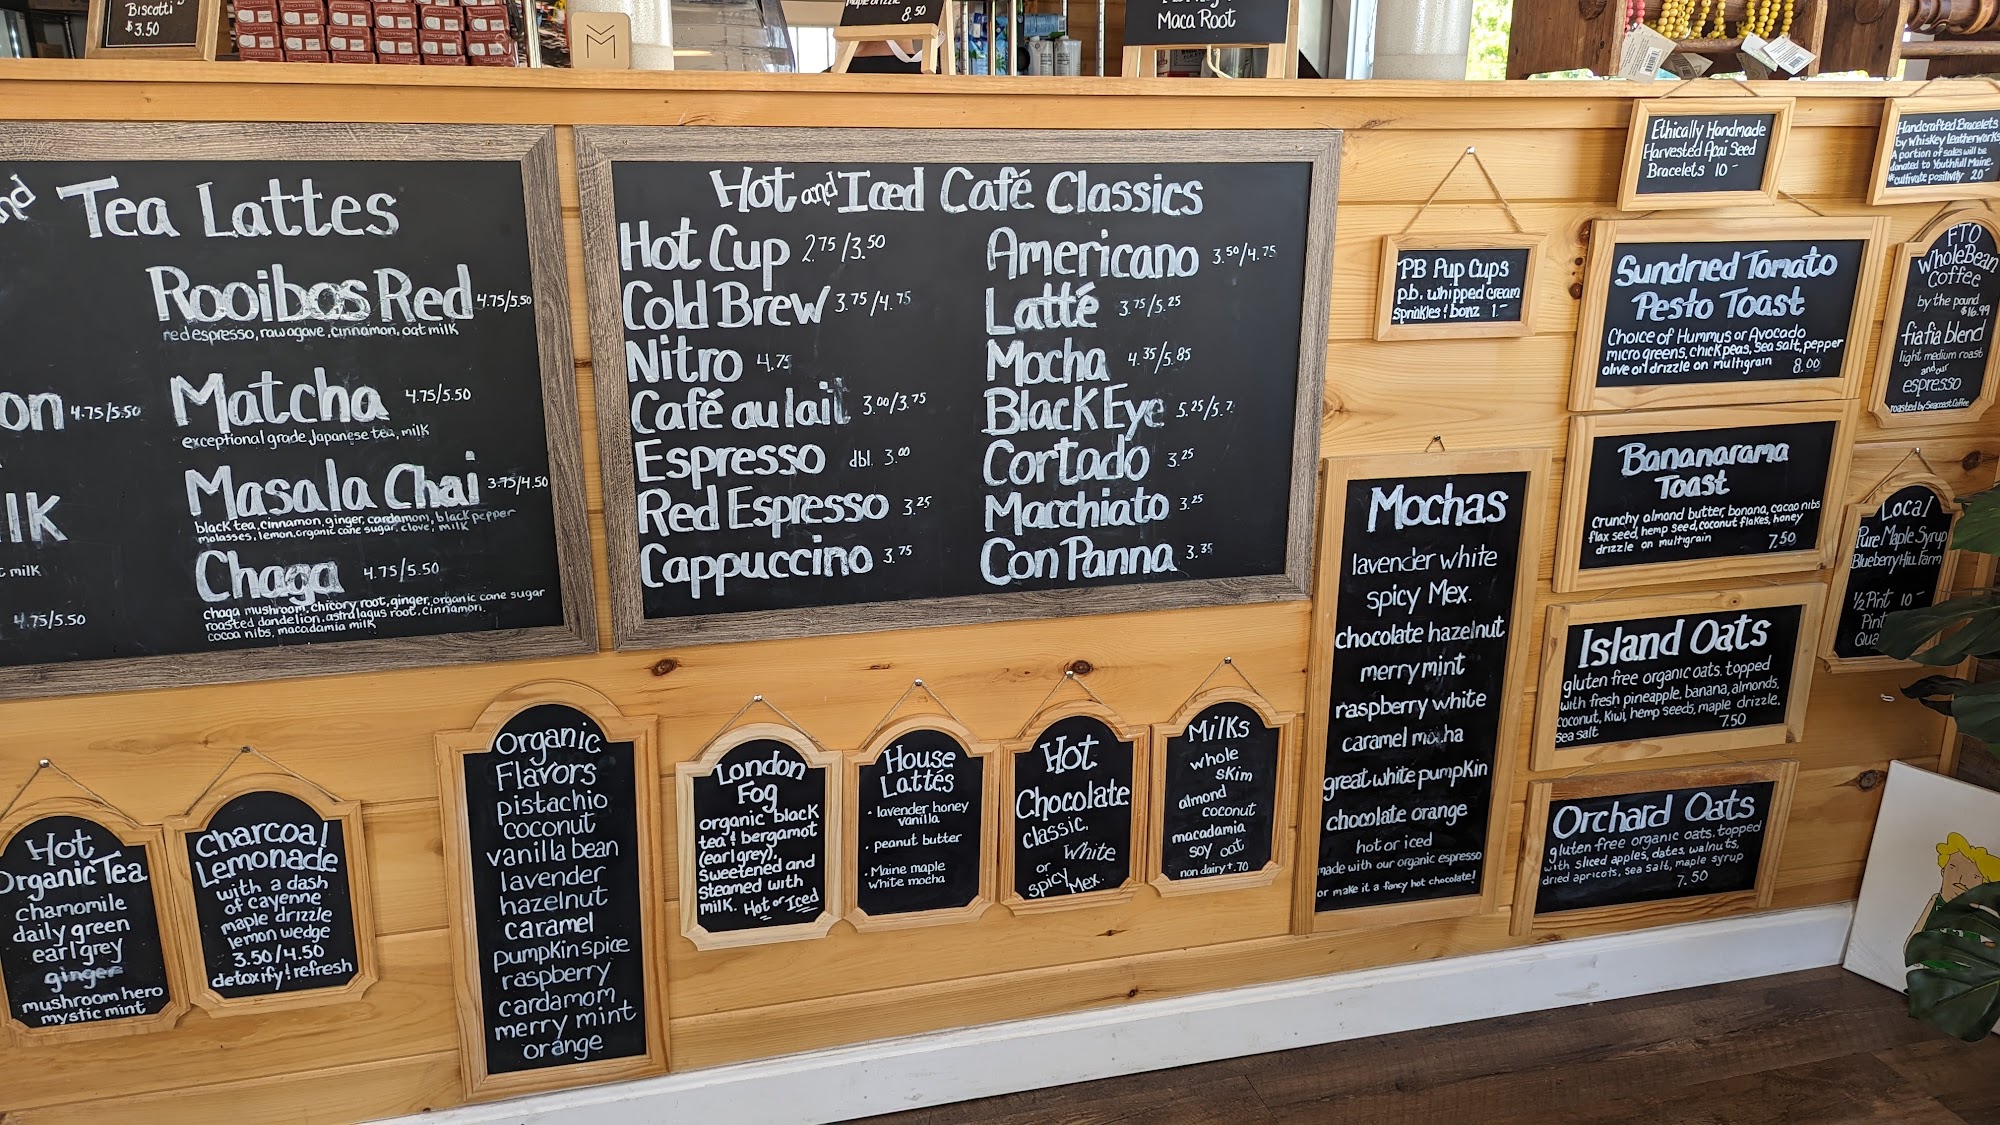 Biscotti
$3.50
8.50
Maca Root
Tea Lattes
Rooibos Red 4.75/5.50
red espresso, raw agave, cinnamon, oat milk
4.75/5.50
Matcha 4.75/5.50
exceptional grade Japanese tea, milk
Masala Chai 3.75/4.50
black tea, cinnamon, ginger, cardamom, black pepper
molasses, lemon, organic cane sugar, clove, milk
Chaga 4.75/5.50
chaga mushroom, chicory root, ginger, organic cane sugar
roasted dandelion, astralagus root, cinnamon,
cocoa nibs, macadamia milk
milk
4.75/5.50
Hot and Iced Café Classics
Hot Cup 2.75/3.50
Cold Brew 3.75/4.75
Nitro 4.75
Café au lait 3.00/3.75
Espresso dbl. 3.00
Red Espresso 3.25
Cappuccino 3.75
Americano 3.50/4.75
Latté 3.75/5.25
Mocha 4.35/5.85
Black Eye 5.25/5.7
Cortado 3.25
Macchiato 3.25
Con Panna 3.35
PB Pup Cups
p.b. whipped cream
sprinkles & bonz 1.-
Ethically Handmade
Harvested Acai Seed
Bracelets 10-
Handcrafted Bracelets
by Whiskey Leatherworks
A portion of sales will be
donated to Youthfull Maine.
cultivate positivity 20-
Sundried Tomato
Pesto Toast
Choice of Hummus or Avocado
micro greens, chick peas, sea salt, pepper
olive oil drizzle on multigrain 8.00
FTO
Whole Bean
Coffee
by the pound
$16.99
fia fia blend
light medium roast
and our
espresso
roasted by Seacoast Coffee
Bananarama
Toast
crunchy almond butter, banana, cacao nibs
flax seed, hemp seed, coconut flakes, honey
drizzle on multigrain 7.50
Local
Pure Maple Syrup
Blueberry Hill Farm
1/2 Pint 10-
Pint
Qua
Island Oats
gluten free organic oats. topped
with fresh pineapple, banana, almonds,
coconut, kiwi, hemp seeds, maple drizzle,
sea salt 7.50
Orchard Oats
gluten free organic oats. topped
with sliced apples, dates, walnuts,
dried apricots, sea salt, maple syrup
7.50
Mochas
lavender white
spicy Mex.
chocolate hazelnut
merry mint
raspberry white
caramel mocha
great white pumpkin
chocolate orange
hot or iced
made with our organic espresso
or make it a fancy hot chocolate!
Hot
Organic Tea
chamomile
daily green
earl grey
ginger
mushroom hero
mystic mint
Charcoal
Lemonade
with a dash
of cayenne
maple drizzle
lemon wedge
3.50/4.50
detoxify & refresh
Organic
Flavors
pistachio
coconut
vanilla bean
lavender
hazelnut
caramel
pumpkin spice
raspberry
cardamom
merry mint
orange
London
Fog
organic black
tea & bergamot
(earl grey),
sweetened and
steamed with
milk. Hot or Iced
House
Lattés
· lavender honey
vanilla
· peanut butter
· Maine maple
white mocha
Hot
Chocolate
classic,
or White
spicy Mex.
Milks
whole
skim
almond
coconut
macadamia
soy oat
non dairy +.70